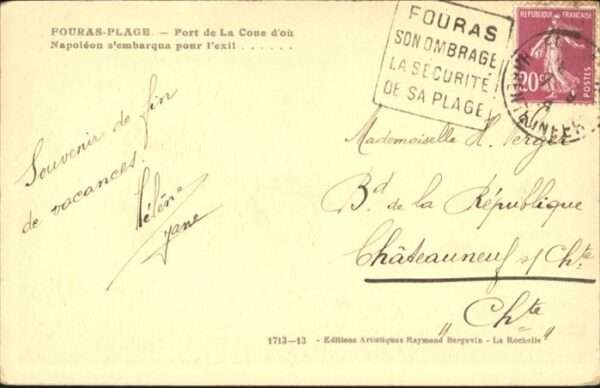 FOURAS-PLAGE. — Port de La Coue d'où
Napoléon s'embarqua pour l'exil . . . . . .
FOURAS
SON OMBRAGE
LA SÉCURITÉ
DE SA PLAGE
RÉPUBLIQUE FRANÇAISE
20c
POSTES
Souvenir de fin
de vacances.
Hélène
Mademoiselle H. Verger
Bd de la République
Châteauneuf s/ Chte
" Chte "
1713-13 — Editions Artistiques Raymond Bergevin — La Rochelle